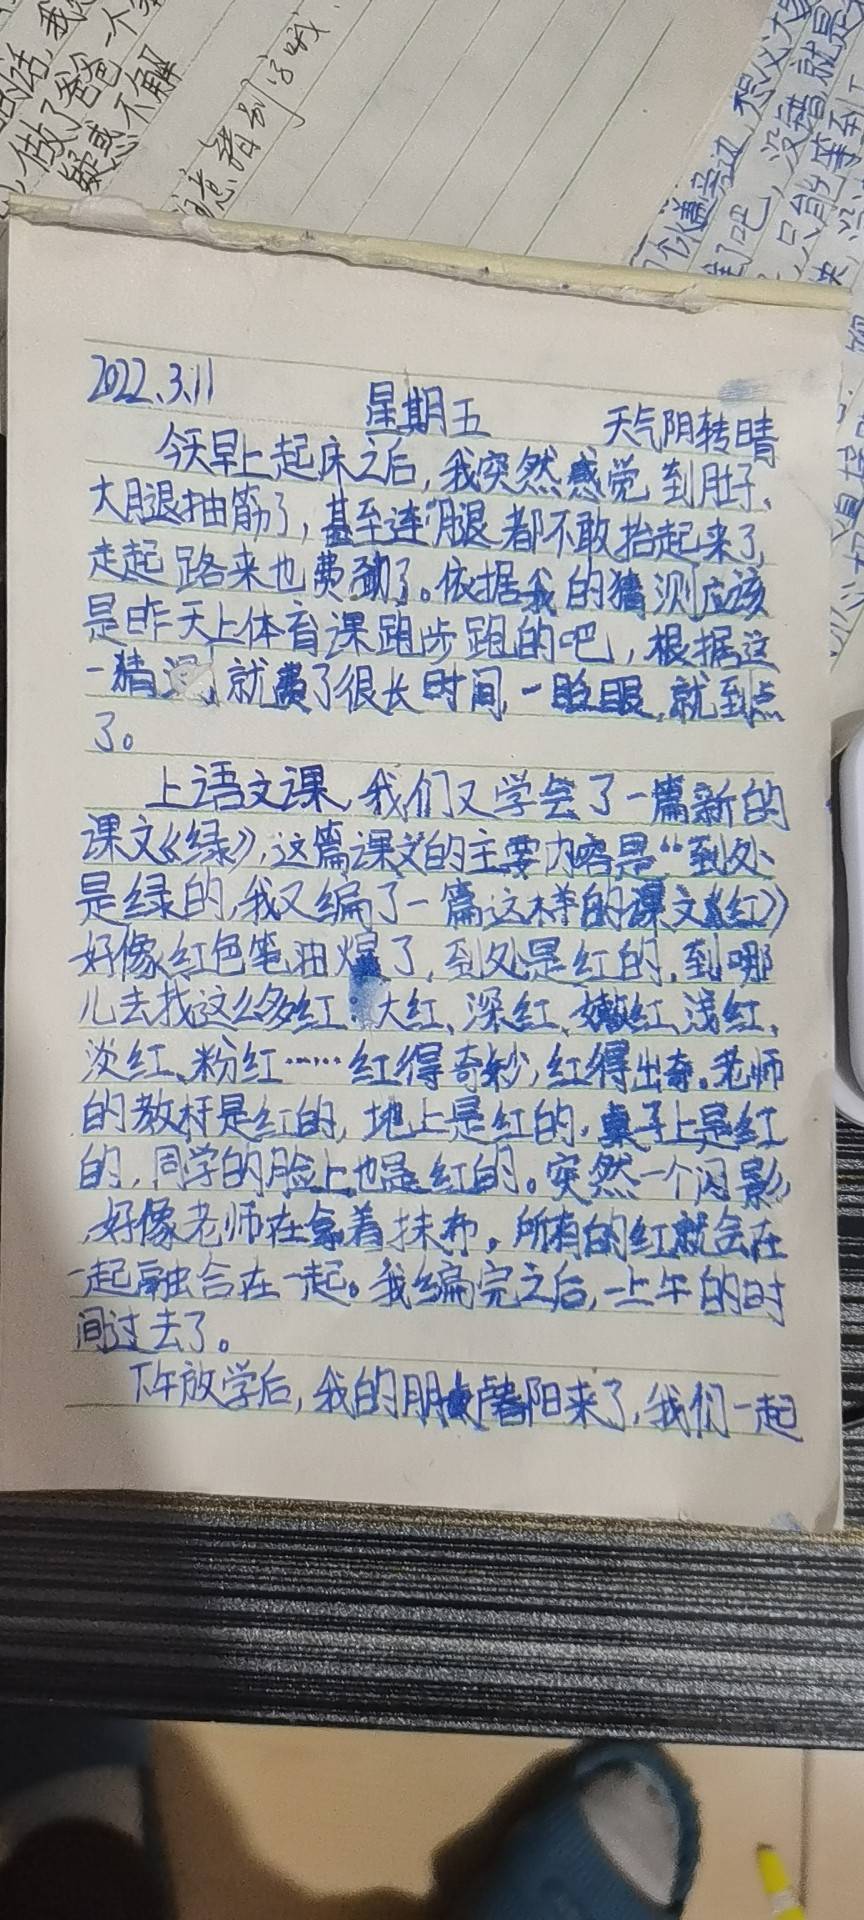 的话，我
，做了爸爸一个
疑惑不解
注意错别字哦！
旁边，想必大
了吧，没错，就是
只能拿到
2022.3.11 星期五 天气阴转晴
今天早上起床之后，我突然感觉到肚子、
大腿抽筋了，甚至连腿都不敢抬起来了，
走起路来也费劲了。依据我的猜测应该
是昨天上体育课跑步跑的吧，根据这
一猜测就费了很长时间，一眨眼，就到点
了。
上语文课，我们又学会了一篇新的
课文《绿》，这篇课文的主要内容是“到处
是绿的，我又编了一篇这样的课文《红》
好像红色笔油爆了，到处是红的，到哪
儿去找这么多红：大红、深红、嫩红、浅红、
淡红、粉红……红得奇妙，红得出奇。老师
的教杆是红的，地上是红的，桌子上是红
的，同学的脸上也是红的。突然一个闪影
，好像老师在拿着抹布，所有的红就会在
一起融合在一起。我编完之后，一上午的时
间过去了。
下午放学后，我的朋友阳来了，我们一起